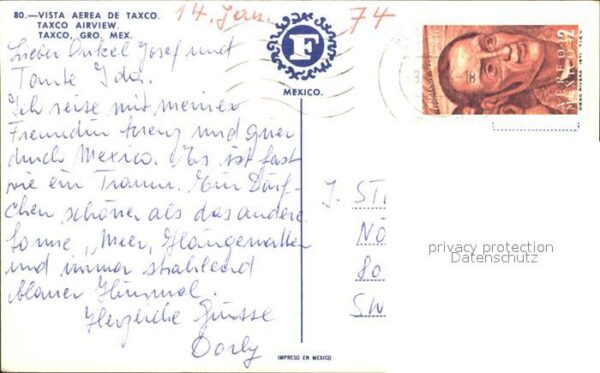 80.—VISTA AEREA DE TAXCO.
TAXCO AIRVIEW.
TAXCO, GRO. MEX.
14. Jan. 74
F
MEXICO.
Lieber Onkel Josef und
Tante Ida.
Ich reise mit meiner
Freundin kreuz und quer
durch Mexico. Es ist fast
wie ein Traum. Ein Dörf-
chen schöner als das andere
Sonne, Meer,
und immer strahlend
blauer Himmel.
Herzliche Grüsse
Dorly
J. ST
NO
80
SW
privacy protection
Datenschutz
IMPRESO EN MEXICO
MEXICO
DIEGO RIVERA